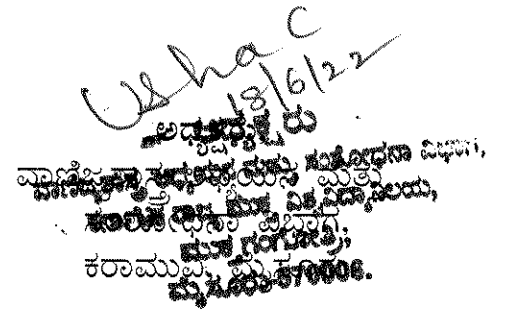 Usha C
18/6/22
ಅಧ್ಯಕ್ಷರು
ವಾಣಿಜ್ಯಶಾಸ್ತ್ರ ಅಧ್ಯಯನ ಮತ್ತು ಸಂಶೋಧನಾ ವಿಭಾಗ,
ಮುಕ್ತ ವಿಶ್ವವಿದ್ಯಾನಿಲಯ,
ಸಂಶೋಧನಾ ವಿಭಾಗ
ಮುಕ್ತಗಂಗೋತ್ರಿ,
ಕರಾಮುವಿ, ಮೈಸೂರು
ಮೈಸೂರು-570006.